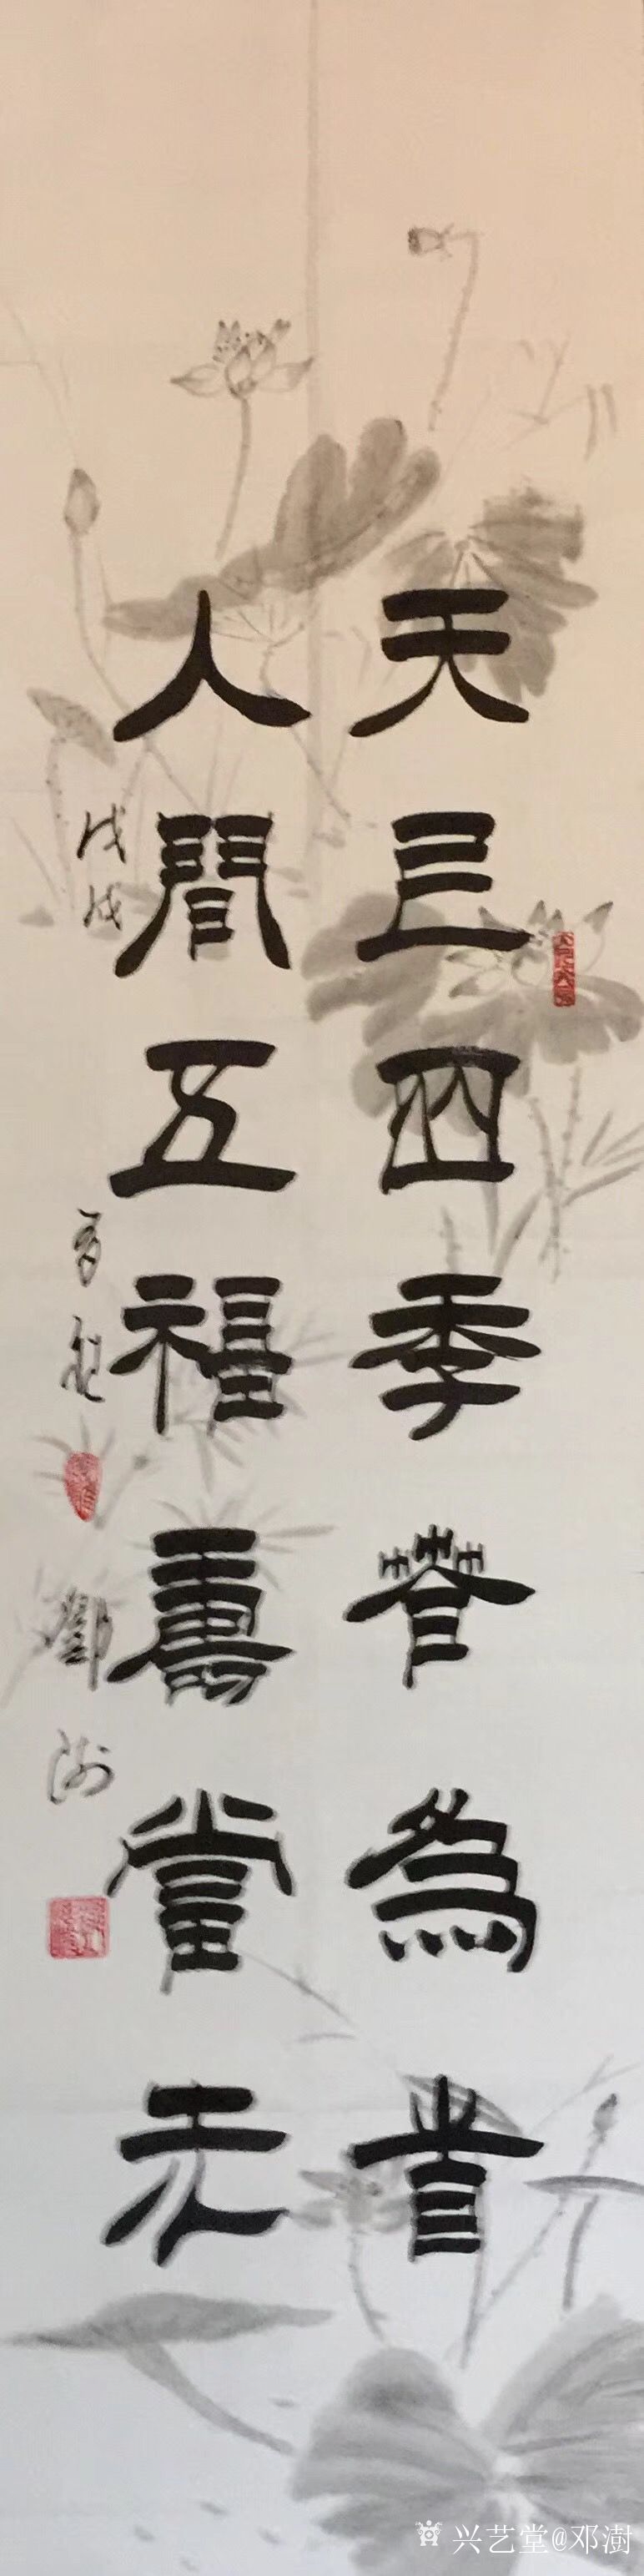 天四季春為首
人間五福壽當先
戊戌
鄧澍
兴艺堂@邓澍